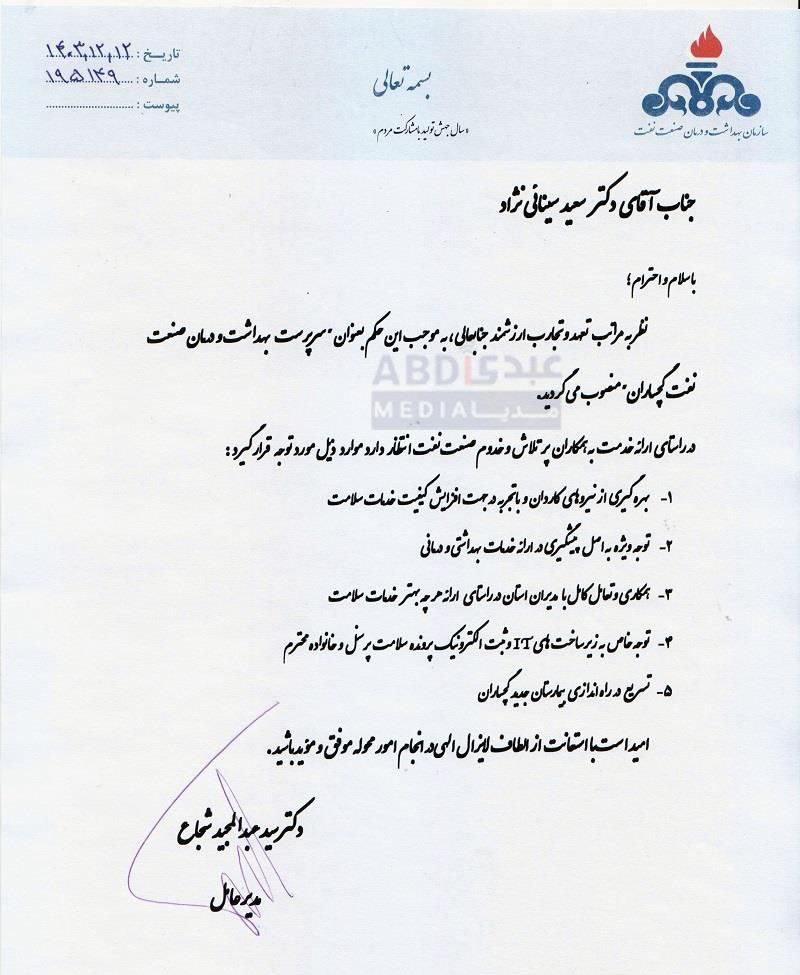 تاریخ : ۱۴۰۳,۱۲,۱۲
شماره : ۱۹۵۱۴۹
پیوست :
بسمه تعالی
«سال جهش تولید با مشارکت مردم»
سازمان بهداشت و درمان صنعت نفت
جناب آقای دکتر سعید سینائی نژاد
با سلام و احترام؛
نظر به مراتب تعهد و تجارب ارزشمند جنابعالی، به موجب این حکم بعنوان "سرپرست بهداشت و درمان صنعت
نفت گچساران" منصوب می گردید.
ABDI عبدی
MEDIA مدیا
در راستای ارائه خدمت به همکاران پر تلاش و خدوم صنعت نفت انتظار دارد موارد ذیل مورد توجه قرار گیرد:
۱- بهره گیری از نیروهای کاردان و باتجربه در جهت افزایش کیفیت خدمات سلامت
۲- توجه ویژه به اصل پیشگیری در ارائه خدمات بهداشتی و درمانی
۳- همکاری و تعامل کامل با مدیران استان در راستای ارائه هر چه بهتر خدمات سلامت
۴- توجه خاص به زیرساخت های IT و ثبت الکترونیک پرونده سلامت پرسنل و خانواده محترم
۵- تسریع در راه اندازی بیمارستان جدید گچساران
امید است با استعانت از الطاف لایزال الهی در انجام امور محوله موفق و مؤید باشید.
دکتر سید عبدالمجید شجاع
مدیرعامل